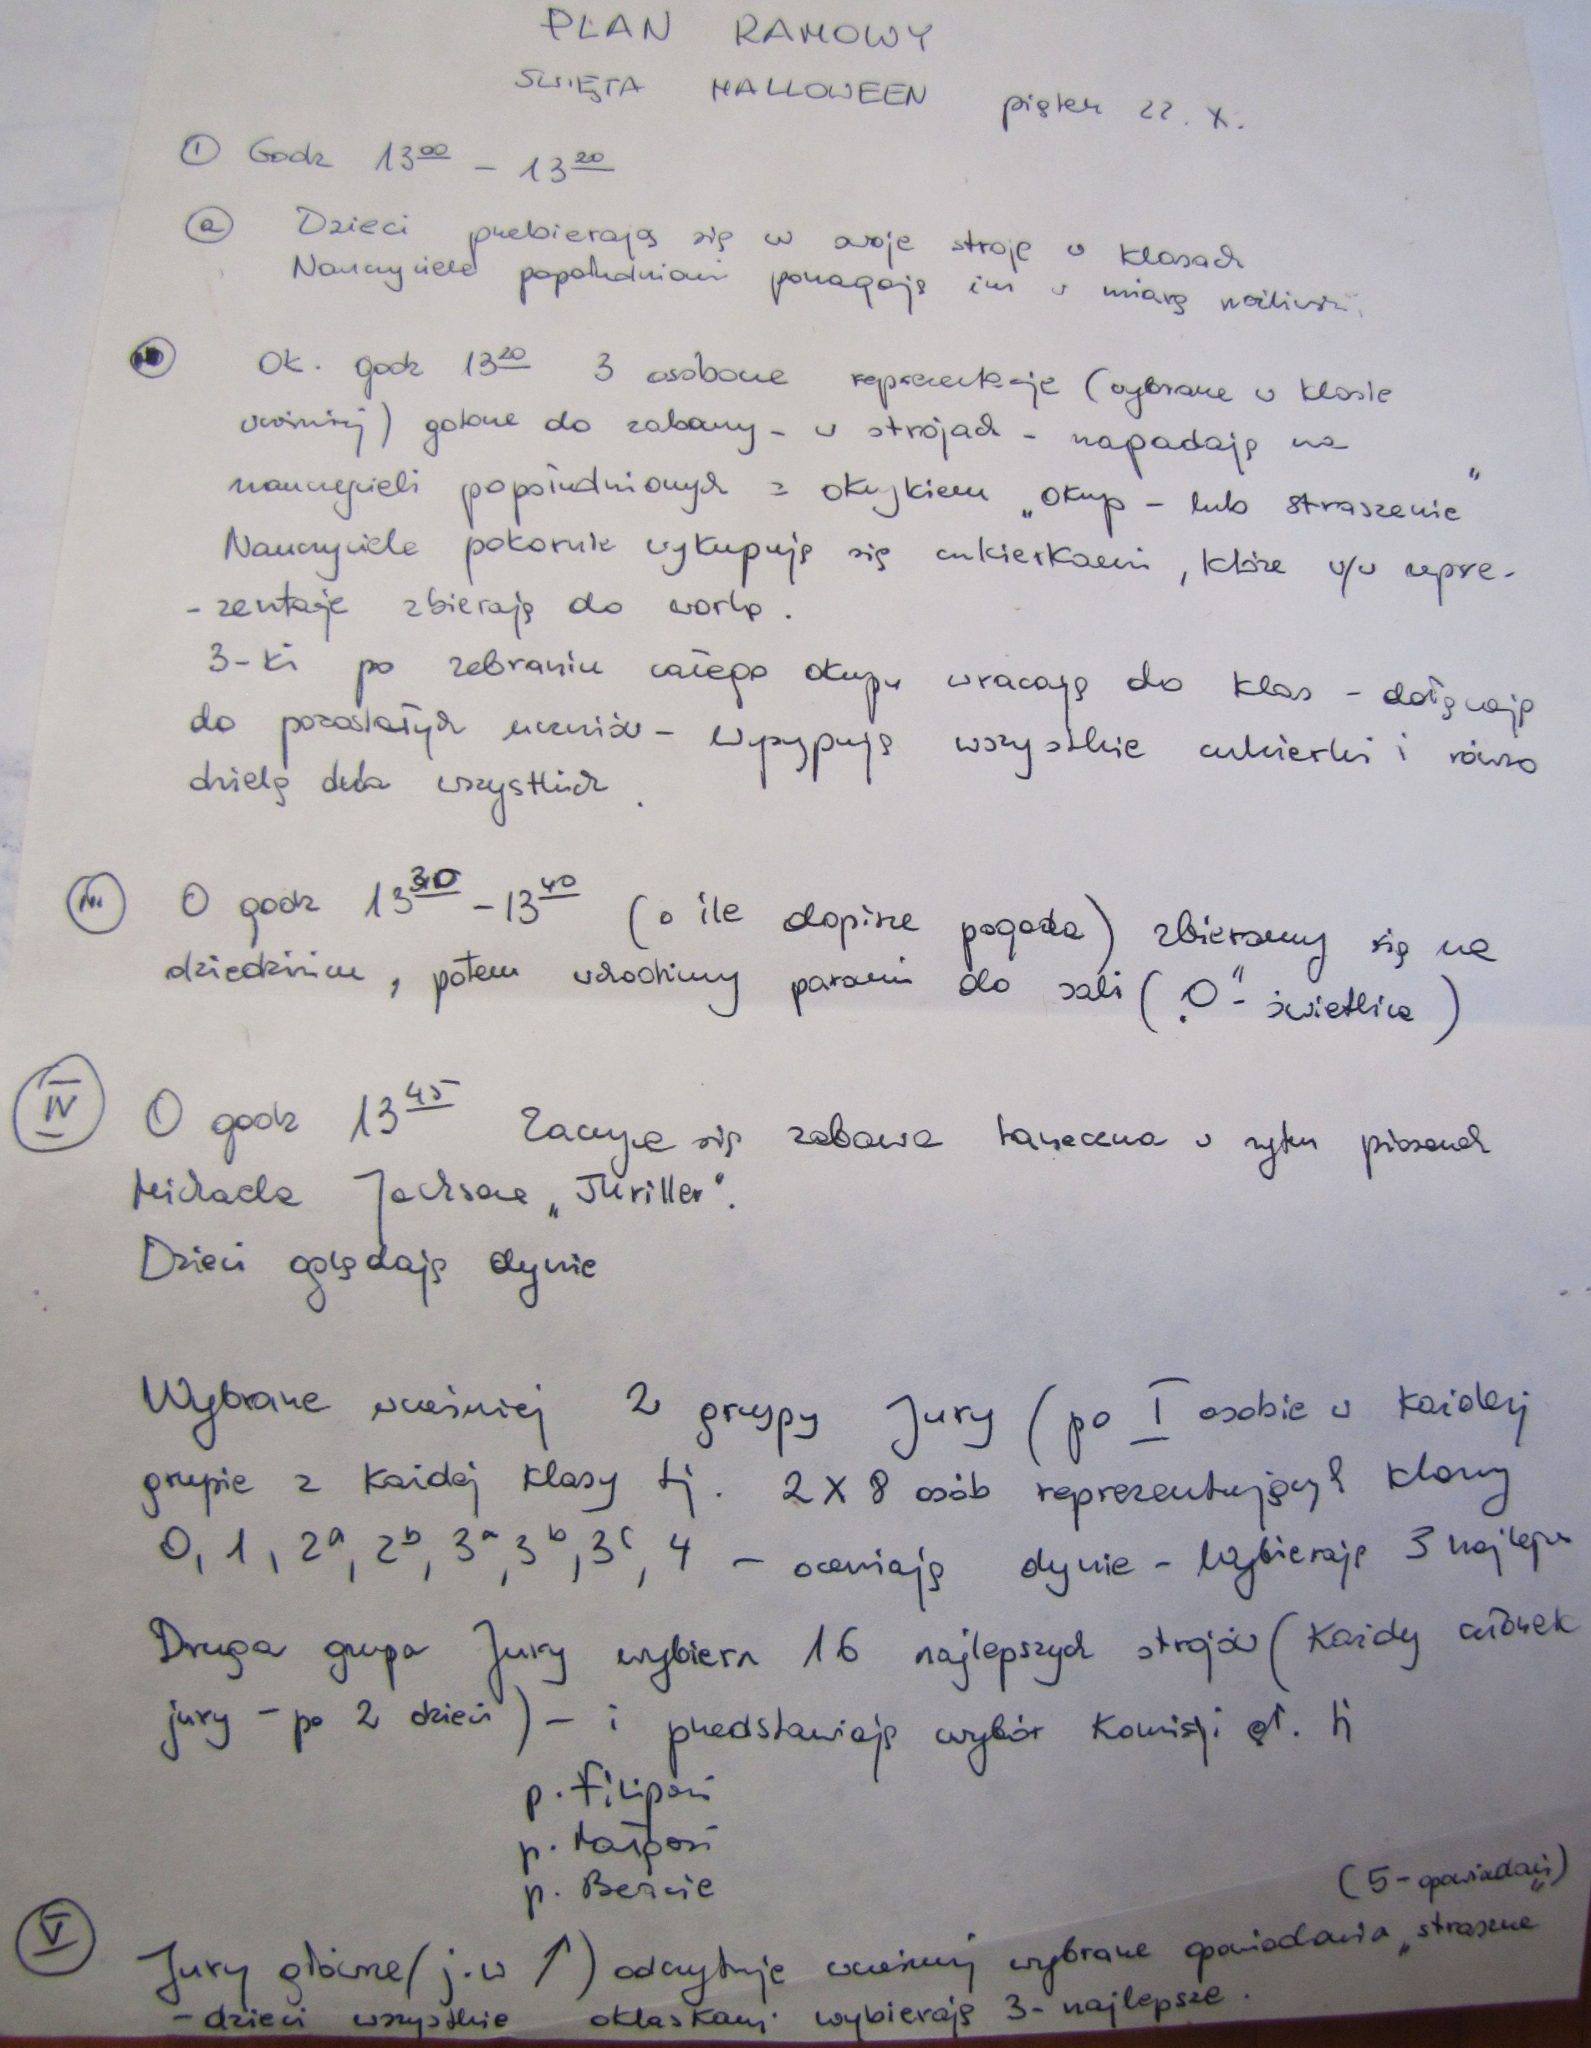 PLAN RAMOWY
ŚWIĘTA HALLOWEEN piątek 22. X.
① Godz 13⁰⁰ – 13²⁰
ⓐ Dzieci przebierają się w swoje stroje w klasach
Nauczyciele popołudniowi pomagają im w miarę możliwości.
Ok. godz 13²⁰ 3 osobowe reprezentacje (wybrane w klasie
wcześniej) gotowe do zabawy – w strojach – napadają na
nauczycieli popołudniowych z okrzykiem „okup – lub straszenie"
Nauczyciele pokornie wykupują się cukierkami, które w/w repre-
-zentacje zbierają do worka.
3-ki po zebraniu całego okupu wracają do klas – dołączają
do pozostałych uczniów – wysypują wszystkie cukierki i równo
dzielą dla wszystkich.
III O godz 13³⁰ – 13⁴⁰ (o ile dopisze pogoda) zbieramy się na
dziedzińcu, potem wchodzimy parami do sali („O" – świetlica)
IV O godz 13⁴⁵ Zacznie się zabawa taneczna w rytm piosenek
Michaela Jacksona „Thriller".
Dzieci oglądają dynie
Wybrane wcześniej 2 grupy Jury (po I osobie w każdej
grupie z każdej klasy tj. 2 x 8 osób reprezentujących klasy
0, 1, 2ᵃ, 2ᵇ, 3ᵃ, 3ᵇ, 3ᶜ, 4 – oceniają dynie – Wybierają 3 najleps
Druga grupa Jury wybiera 16 najlepszych strojów (każdy członek
jury – po 2 dzieci) – i przedstawiają wybór Komisji gł. tj
p. Filipowi
p. Małgosi
p. Beacie
(5 – opowiadań)
V Jury główne (j.w ↑) odczytuje wcześniej wybrane opowiadania „straszne"
– dzieci wszystkie oklaskami wybierają 3 – najlepsze.